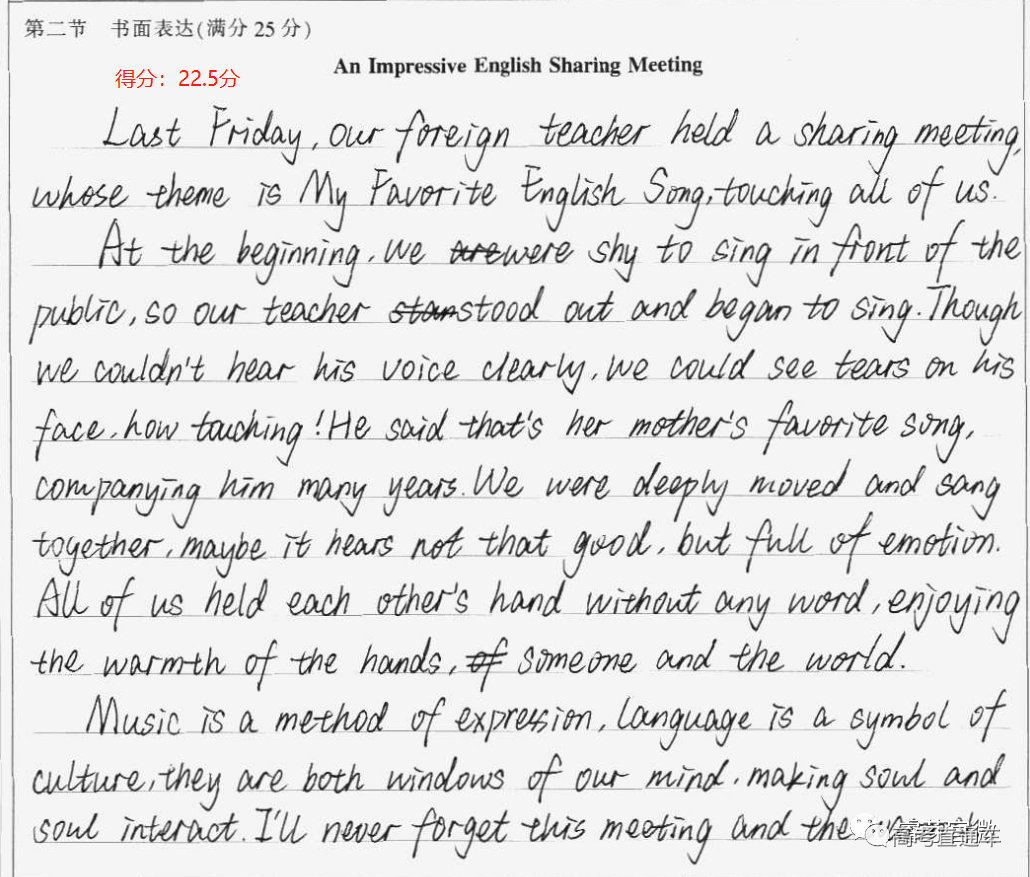 第二节 书面表达(满分25分)
得分：22.5分
An Impressive English Sharing Meeting
Last Friday, our foreign teacher held a sharing meeting,
whose theme is My Favorite English Song, touching all of us.
At the beginning, we are were shy to sing in front of the
public, so our teacher stan stood out and began to sing. Though
we couldn't hear his voice clearly, we could see tears on his
face, how touching! He said that's her mother's favorite song,
companying him many years. We were deeply moved and sang
together, maybe it hears not that good, but full of emotion.
All of us held each other's hand without any word, enjoying
the warmth of the hands, of someone and the world.
Music is a method of expression, language is a symbol of
culture, they are both windows of our mind, making soul and
soul interact. I'll never forget this meeting and the
高考直通车